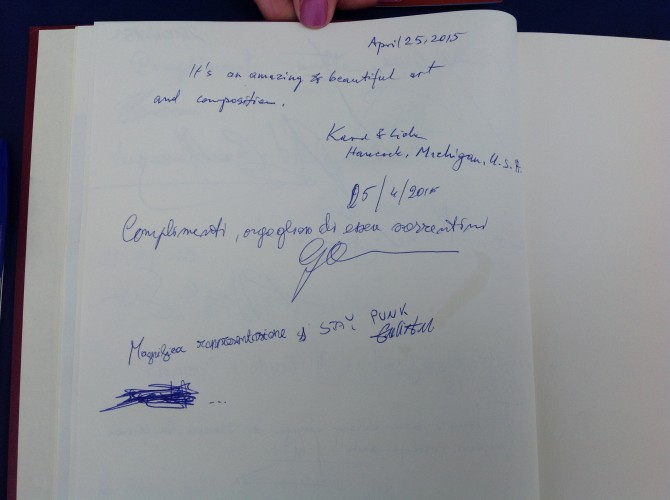 April 25, 2015
It's an amazing & beautiful art
and composition.
Hancock, Michigan, U.S.A.
25/4/2015
Complimenti, orgogliosi di essere sorrentini
Magnifica rappresentazione di PUNK
...